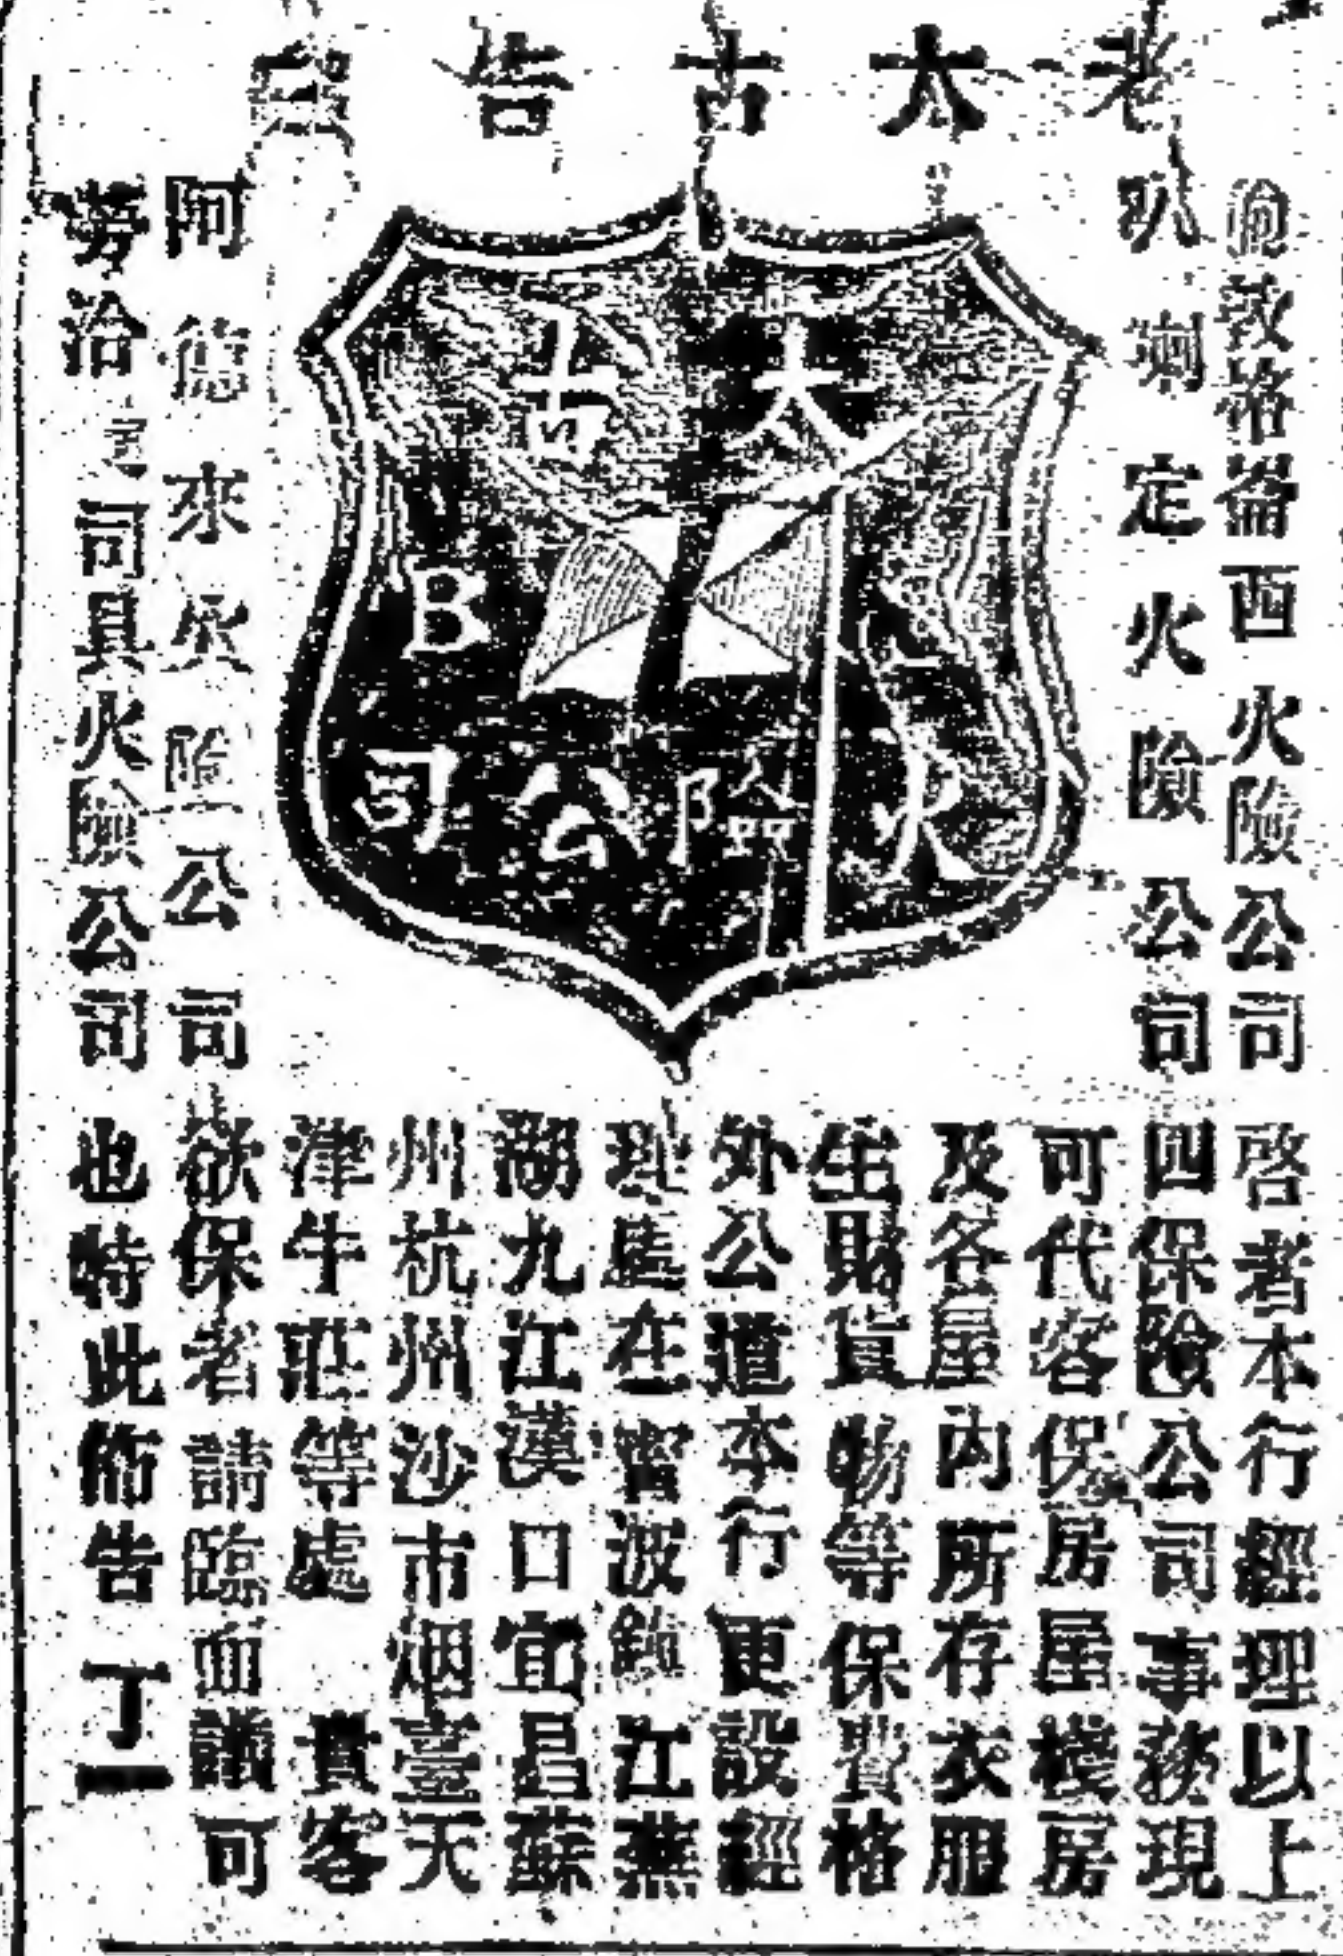 老太古告白
太古
B
火險公司
倫敦格崙西火險公司
叭喇定火險公司
阿德來火險公司
勞洽 司具火險公司
啓者本行經理以上
四保險公司事務現
可代客保房屋棧房
及各屋內所存衣服
生財貨物等保費格
外公道本行更設經
理處在甯波鎮江蕪
湖九江漢口宜昌蘇
州杭州沙市烟臺天
津牛莊等處 貴客
欲保者請臨面議可
也特此佈告 丁一